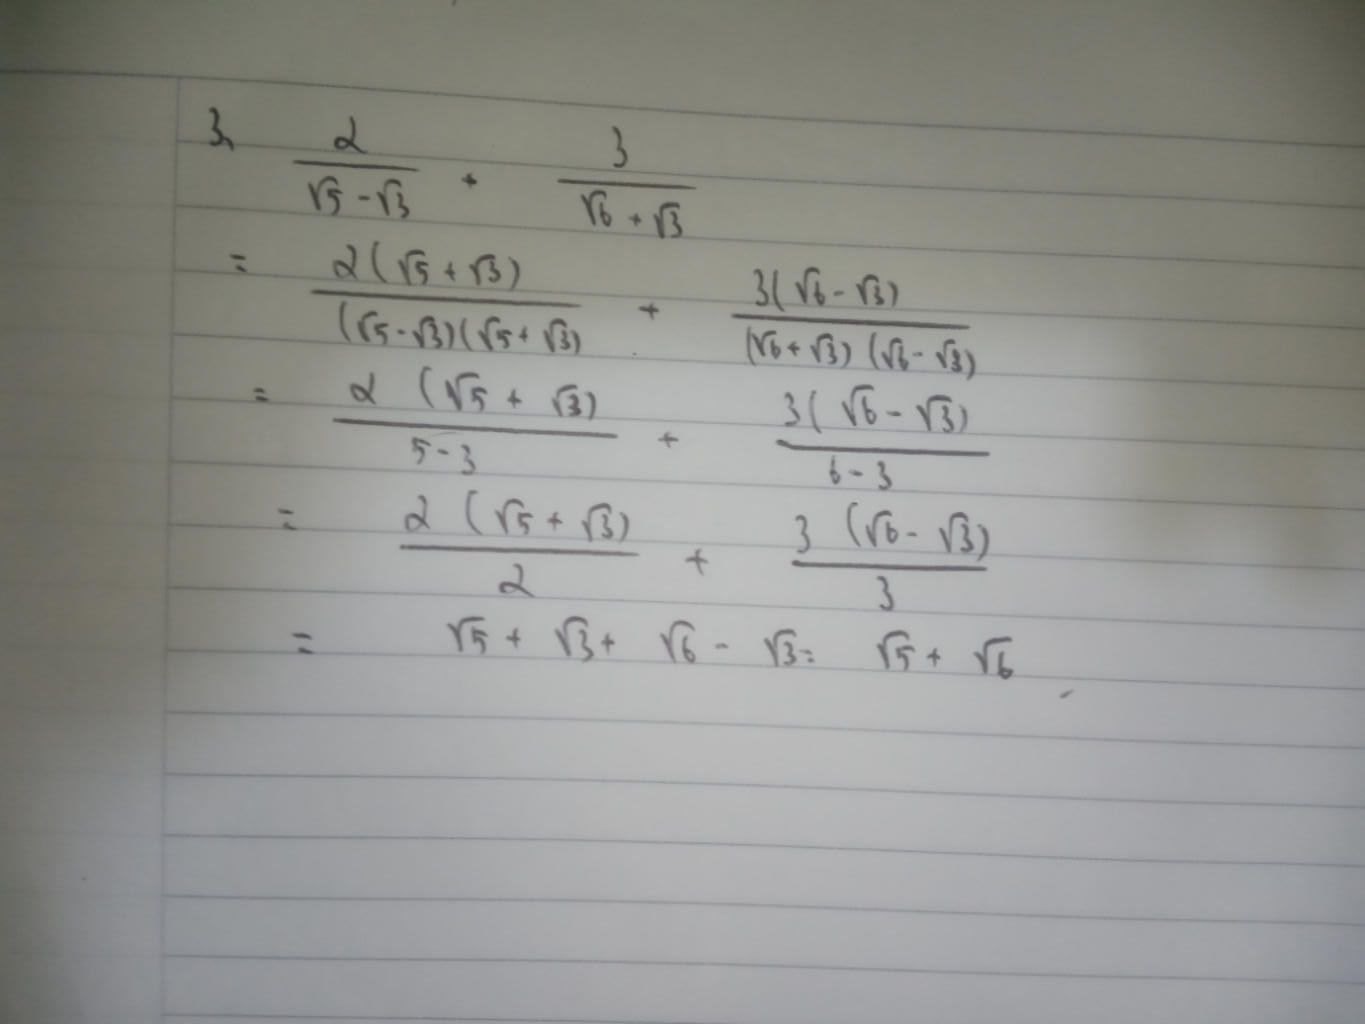 3, 2/(√5 - √3) + 3/(√6 + √3)
= 2(√5 + √3)/((√5 - √3)(√5 + √3)) + 3(√6 - √3)/((√6 + √3)(√6 - √3))
= 2(√5 + √3)/(5 - 3) + 3(√6 - √3)/(6 - 3)
= 2(√5 + √3)/2 + 3(√6 - √3)/3
= √5 + √3 + √6 - √3 = √5 + √6